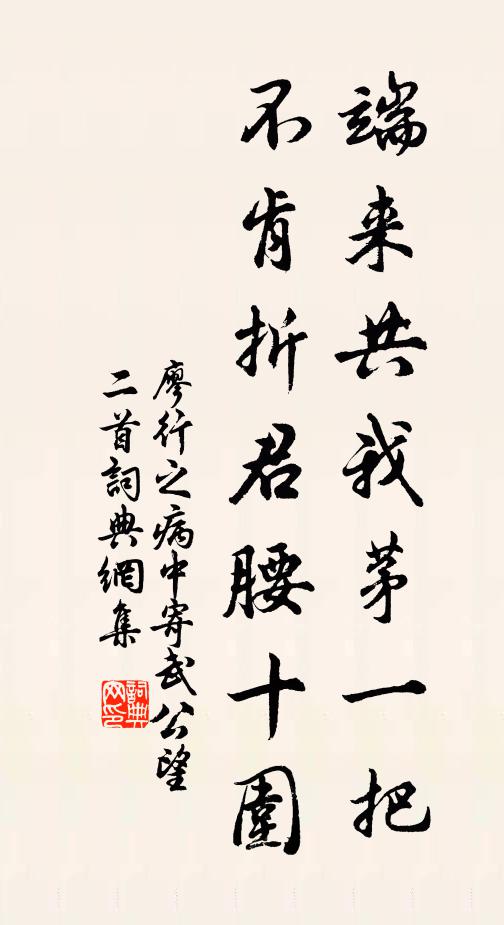 端来共我茅一把
不肯折君腰十圍
廖行之病中寄武公望
二首詞典網集
詞典
网印